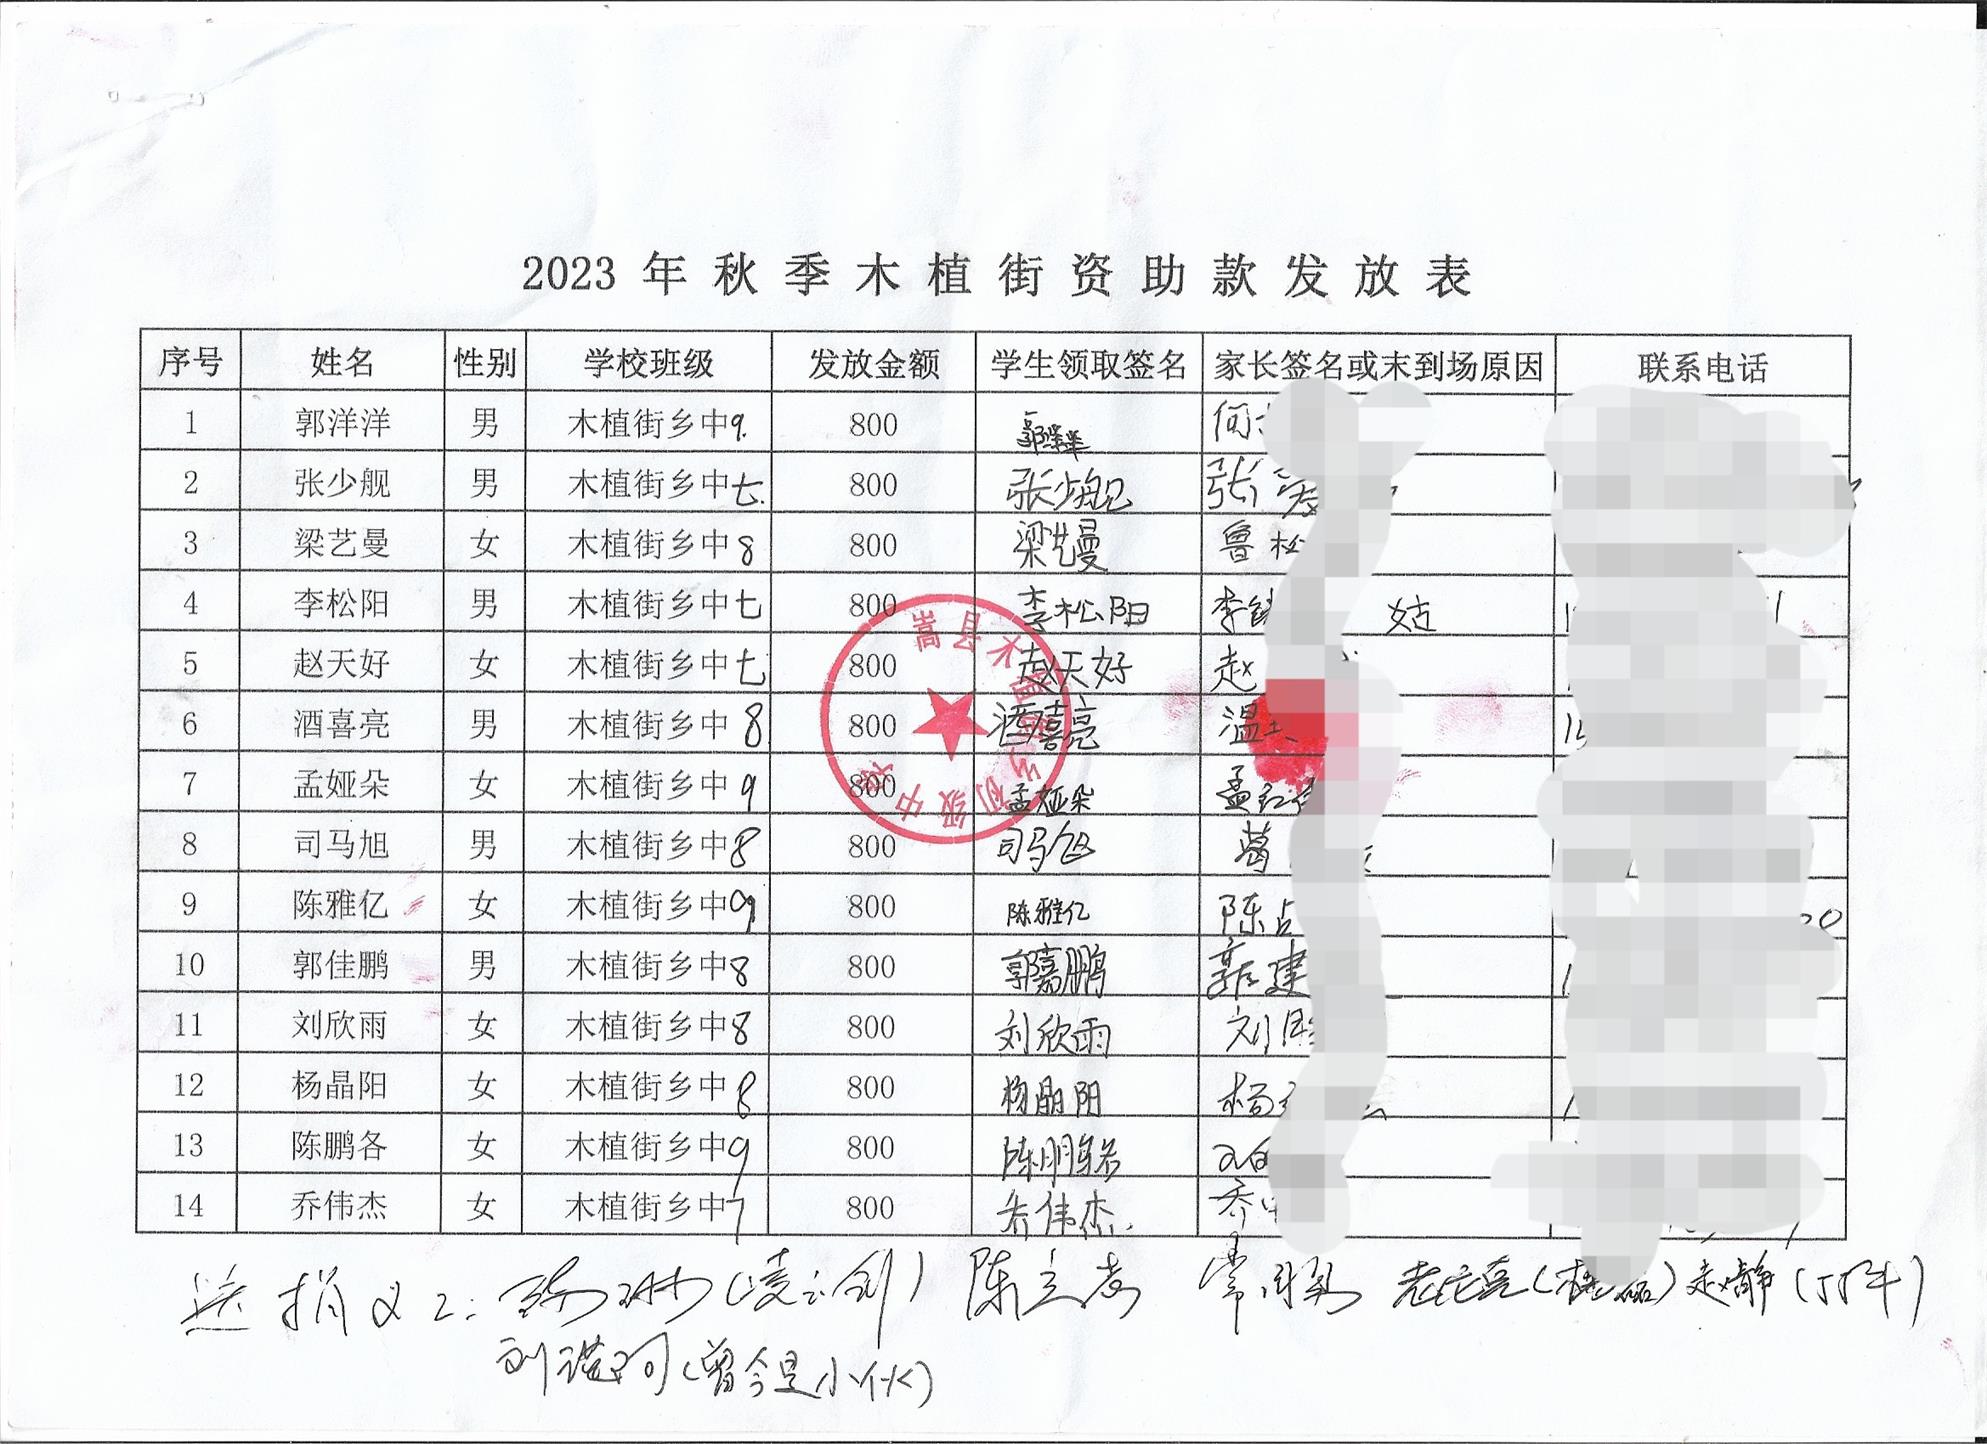 2023 年 秋 季 木 植 街 资 助 款 发 放 表
序号 姓名 性别 学校班级 发放金额 学生领取签名 家长签名或末到场原因 联系电话
1 郭洋洋 男 木植街乡中9. 800 郭洋洋 何
2 张少舰 男 木植街乡中七. 800 张少舰 张
3 梁艺曼 女 木植街乡中8 800 梁艺曼 鲁松
4 李松阳 男 木植街乡中七 800 李松阳 李 姑
5 赵天好 女 木植街乡中七 800 赵天好 赵
6 酒喜亮 男 木植街乡中8 800 酒喜亮 温
7 孟娅朵 女 木植街乡中9 800 孟娅朵 孟红
8 司马旭 男 木植街乡中8 800 司马旭 葛
9 陈雅亿 女 木植街乡中9 800 陈雅亿 陈占
10 郭佳鹏 男 木植街乡中8 800 郭嘉鹏 郭建
11 刘欣雨 女 木植街乡中8 800 刘欣雨 刘
12 杨晶阳 女 木植街乡中8 800 杨晶阳 杨
13 陈鹏各 女 木植街乡中9 800 陈鹏各
14 乔伟杰 女 木植街乡中7 800 乔伟杰. 乔
嵩县木植街乡初级中学
送捐义工: (凌云剑) 陈立 常 (杨磊) 赵静
刘 (曾今是小伙)